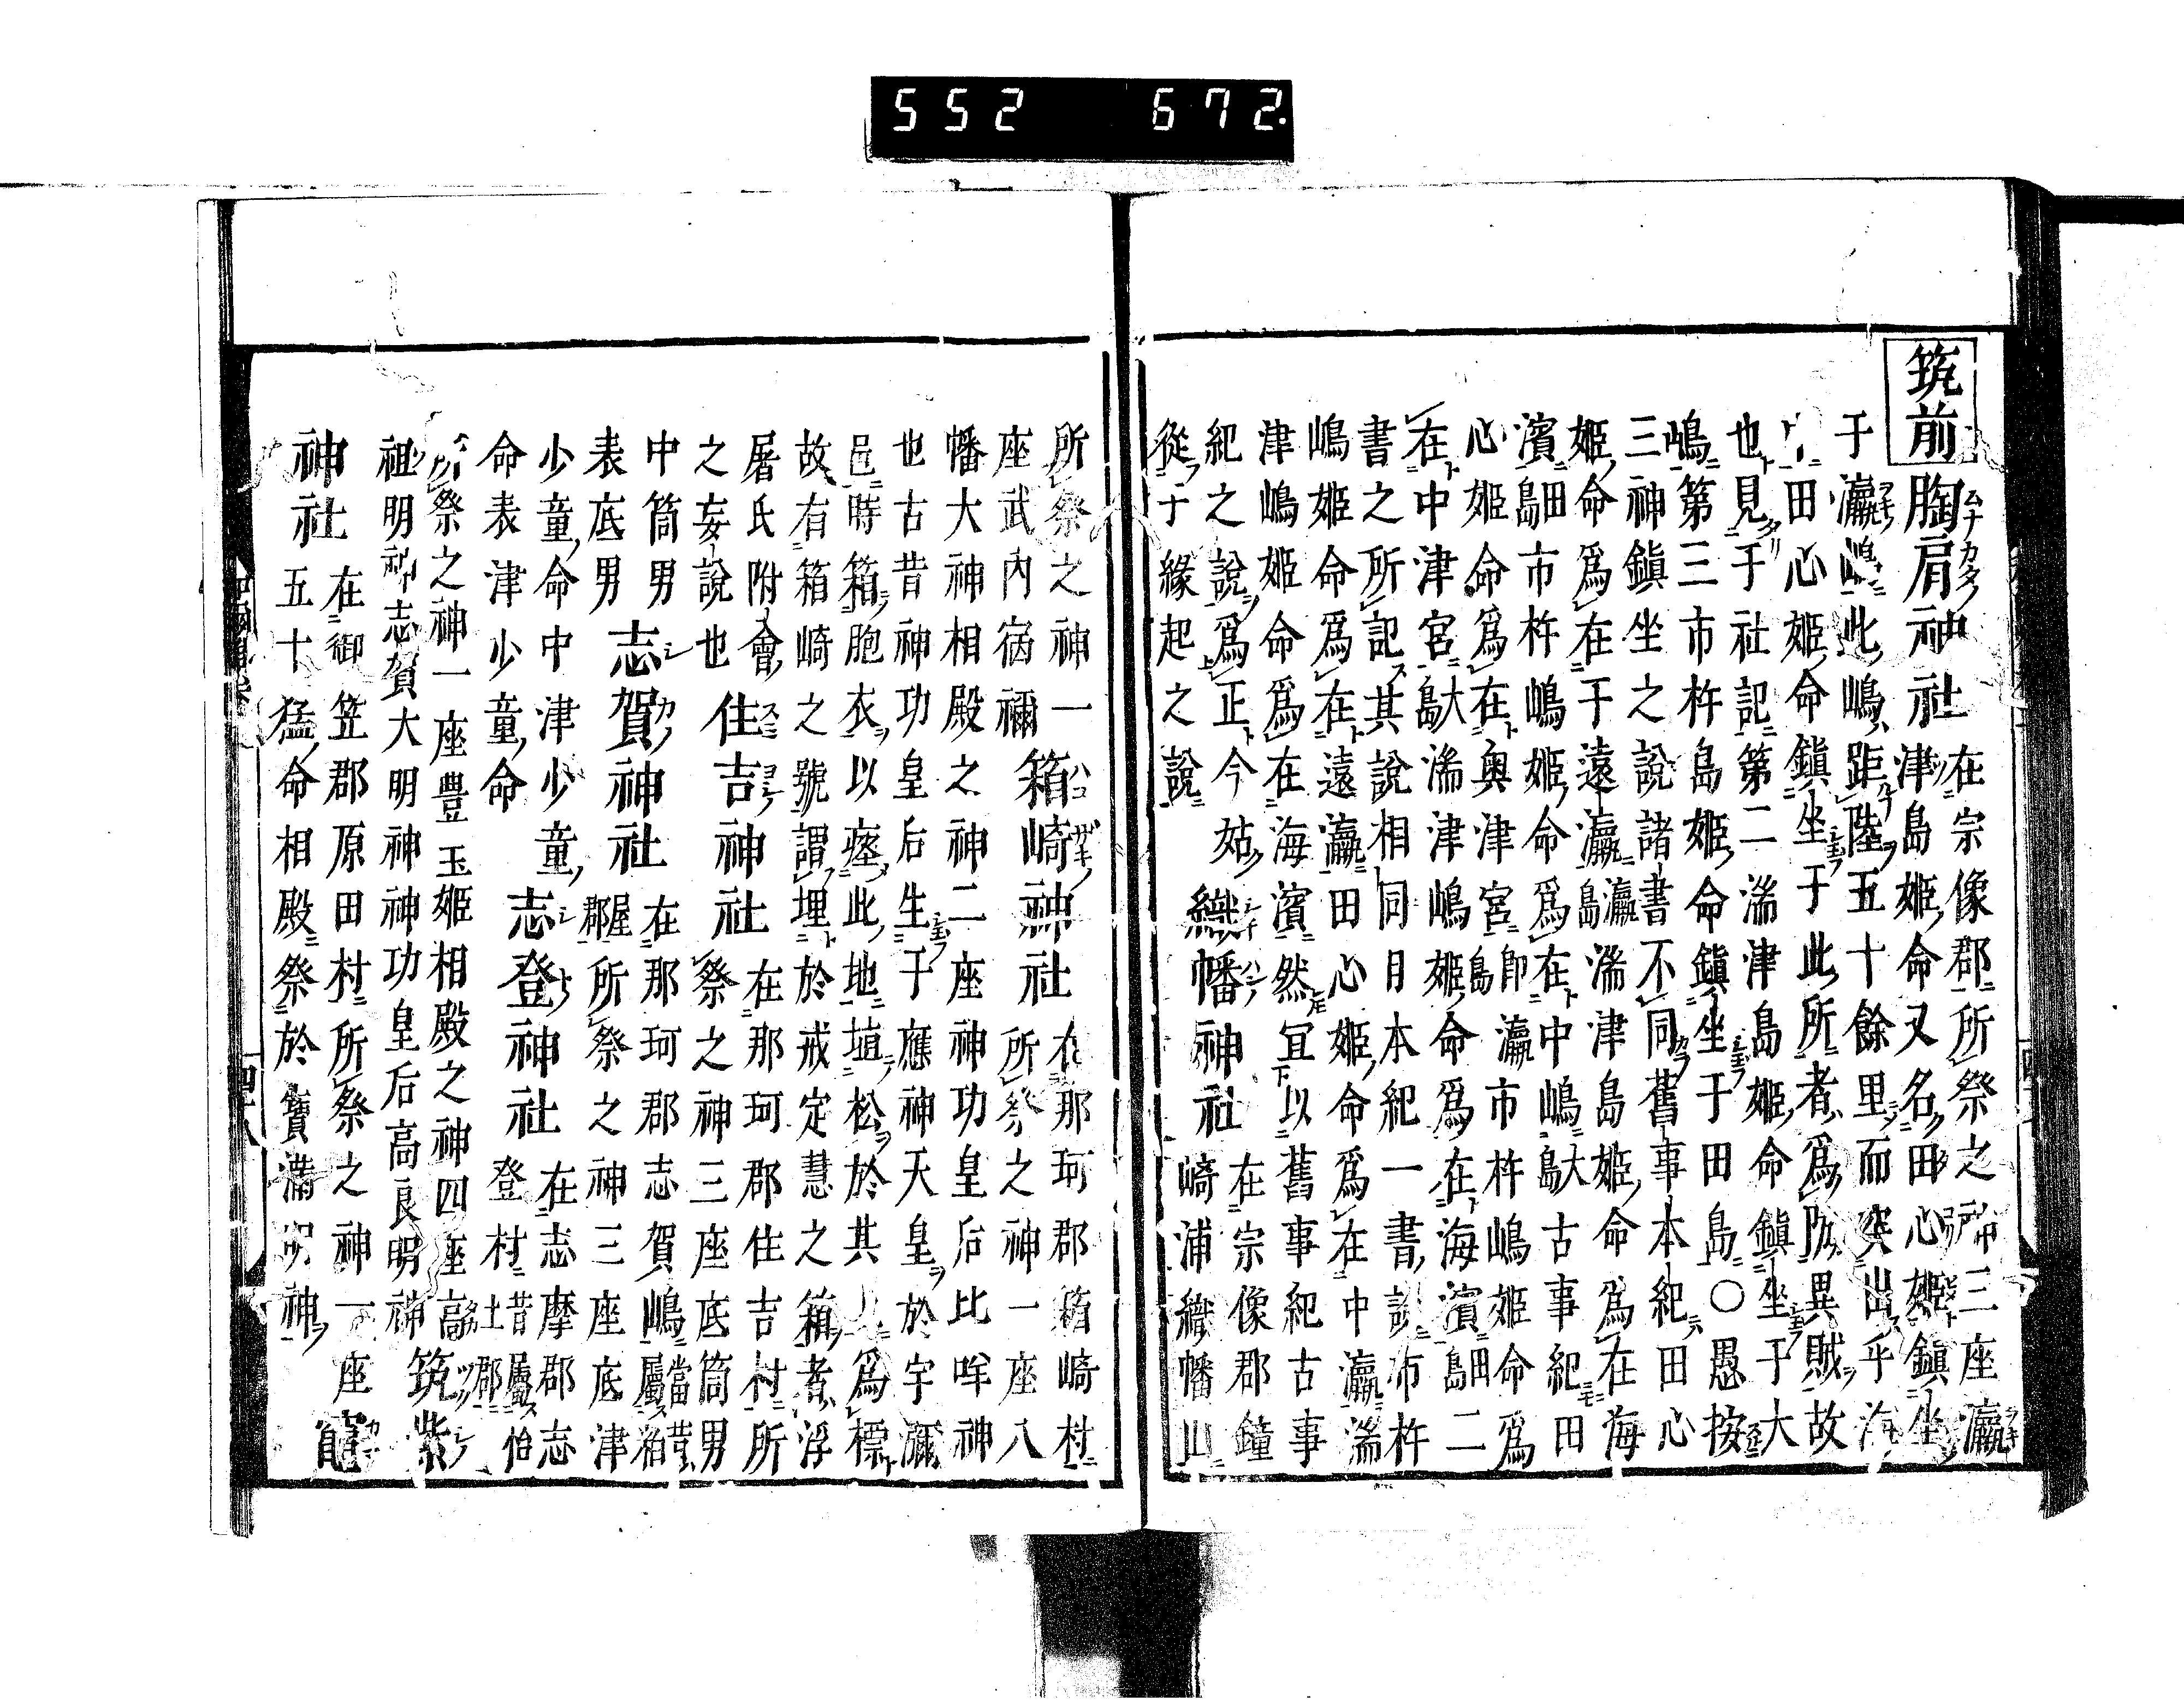 552 672.
筑前
胸肩神社 在宗像郡所祭之神三座瀛
津島姬命又名田心姬鎮坐
于瀛嶋此嶋距陸五十餘里而突出乎海
田心姬命鎮坐于此所者為防異賊故
也見于社記第二湍津島姬命鎮坐于大
嶋第三市杵島姬命鎮坐于田島○愚按
三神鎮坐之說諸書不同舊事本紀田心
姬命為在于遠瀛瀛島湍津島姬命為在海
濱田島市杵嶋姬命為在中嶋大島古事紀田
心姬命為在奥津宮即瀛島市杵嶋姬命為
在中津宮大島湍津嶋姬命為在海濱田島二
書之所記其說相同日本紀一書說市杵
嶋姬命為在遠瀛田心姬命為在中瀛湍
津嶋姬命為在海濱然冝以舊事紀古事
紀之說為正今姑
從于緣起之說
織幡神社 在宗像郡鐘
崎浦織幡山
所祭之神一
座武內宿禰
箱崎神社 在那珂郡箱崎村
所祭之神一座八
幡大神相殿之神二座神功皇后比咩神
也古昔神功皇后生于應神天皇於宇瀰
邑時箱胞衣以瘞此地埴松於其上為標
故有箱崎之號謂埋於戒定慧之箱者浮
屠氏附會
之妄說也
住吉神社 在那珂郡住吉村所
祭之神三座底筒男
中筒男
表底男
志賀神社 在那珂郡志賀嶋屬當昔糟
屋郡所祭之神三座底津
少童命中津少童
命表津少童命
志登神社 在志摩郡志
登村昔屬怡土郡
所祭之神一座豐玉姬相殿之神四座高
祖明神志賀大明神神功皇后高良明神
筑紫
神社 在御笠郡原田村所祭之神一座
五十猛命相殿祭於寶滿明神
竈